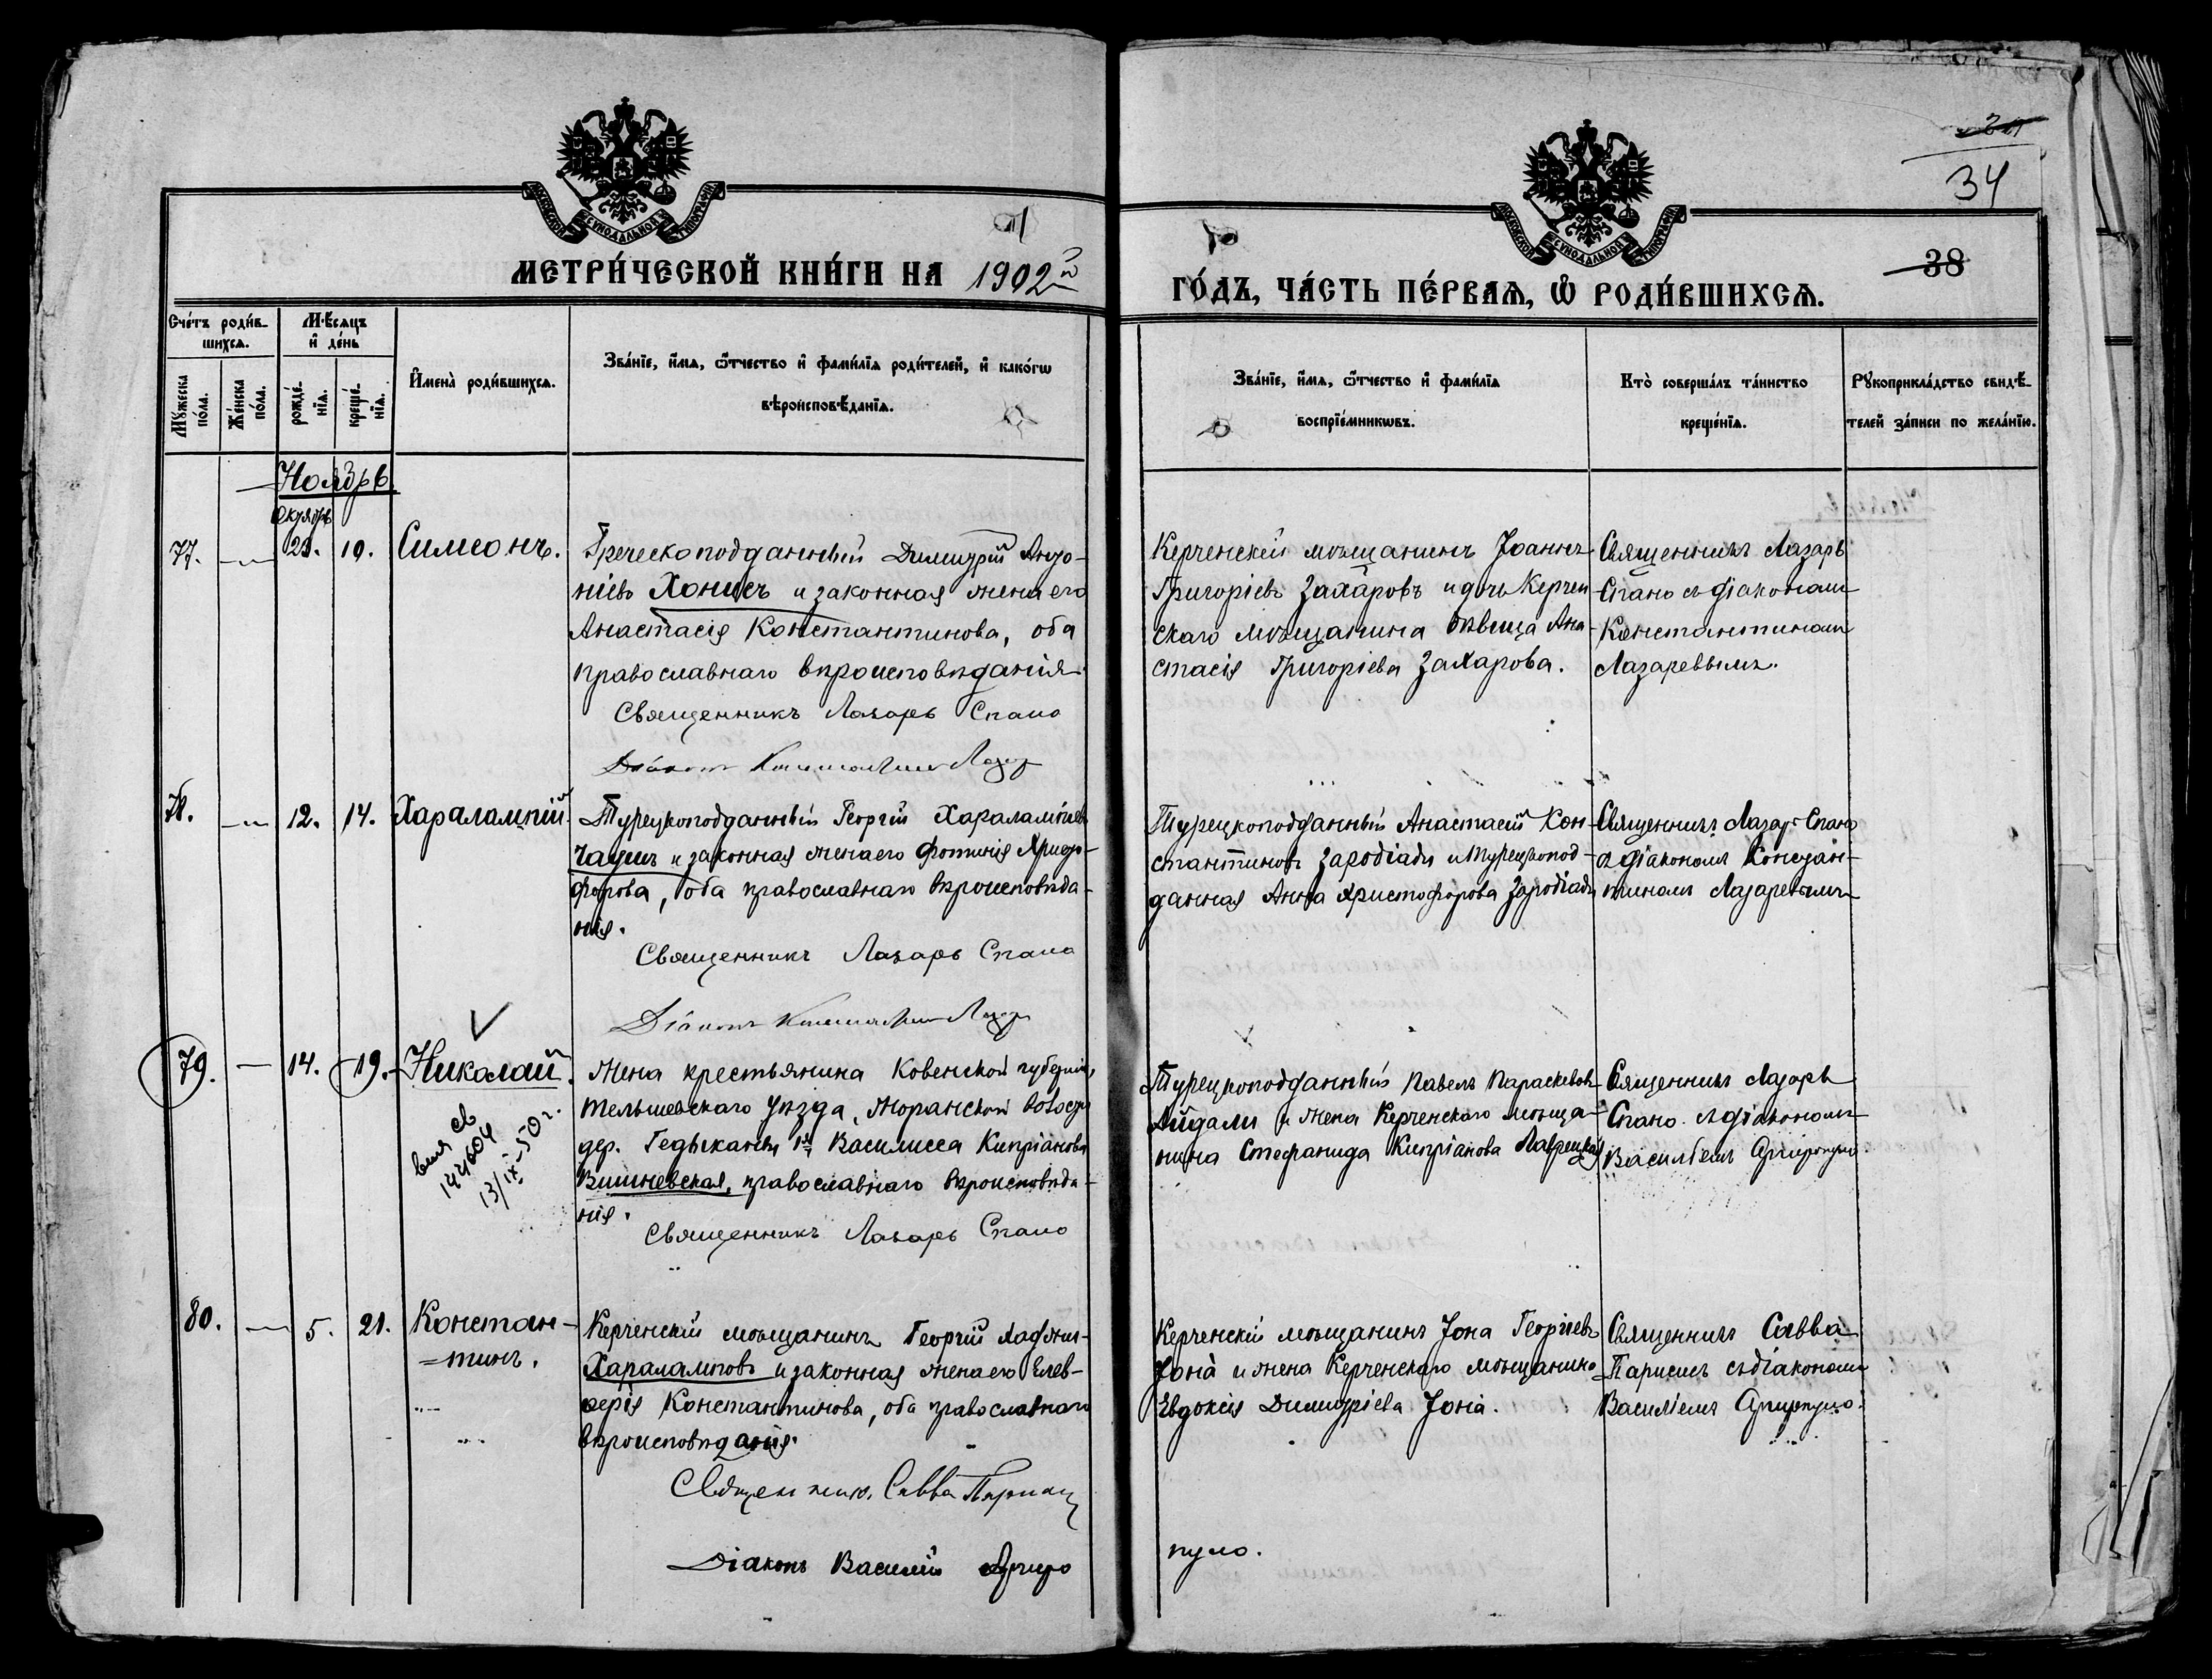 34
МОСКОВСКОЙ СѴНОДАЛЬНОЙ ТИПОГРАФІИ
МОСКОВСКОЙ СѴНОДАЛЬНОЙ ТИПОГРАФІИ
МЕТРИ́ЧЕСКОЙ КНИ́ГИ НА 1902й
ГО́ДЪ, ЧА́СТЬ ПЕ́РВАѦ, Ѽ РОДИ́ВШИХСѦ.
38
Сче́тъ роди́в-
шихсѧ.
Мꙋ́жеска по́ла.
Же́нска по́ла.
М҆ѣсѧцъ и҆ де́нь
рожде́-
нїѧ.
креще́-
нїѧ.
И҆мена̀ роди́вшихсѧ.
Зва́нїе, и҆́мѧ, ѻ҆́тчество и҆ фами́лїѧ роди́телей, и҆ како́гѡ
вѣроисповѣ́данїѧ.
Зва́нїе, и҆́мѧ, ѻ҆́тчество и҆ фами́лїѧ
воспрїе́мникѡвъ.
Кто̀ соверша́лъ та́инство
креще́нїѧ.
Рꙋкоприкла́дство свидѣ́-
телей за́писи по жела́нїю.
Ноябрь
Октябрь
77. — 29. 10. Симеонъ.
Греческоподданный Димитрій Анто-
ніевъ Хонисъ и законная жена его
Анастасія Константинова, оба
православнаго вѣроисповѣданія.
Священникъ Лазарь Спано
Діаконъ Константинъ Лазар
Керченскій мѣщанинъ Іоаннъ
Григоріевъ Захаровъ и дочь Керчен
скаго мѣщанина дѣвица Ана-
стасія Григоріева Захарова.
Священникъ Лазарь
Спано съ діакономъ
Константиномъ
Лазаревымъ.
78. — 12. 14. Харалампій.
Турецкоподданный Георгій Харалампіевъ
Чаушъ и законная жена его Фотинія Христо-
форова, оба православнаго вѣроисповѣда-
нія.
Священникъ Лазарь Спано
Діаконъ Константинъ Лазар
Турецкоподданный Анастасій Кон-
стантиновъ Зародіади и Турецкопод-
данная Анна Христофорова Зародіади
Священникъ Лазарь Спано
съ діакономъ Констан-
тиномъ Лазаревымъ
79. — 14. 19. Николай.
144604
13/IX-50 г.
Жена крестьянина Ковенской губерніи,
Тельшевскаго уѣзда, Жоранской волости
дер. Василисса Кипріанова
Вишневская, православнаго вѣроисповѣда-
нія.
Священникъ Лазарь Спано
Турецкоподданный Павелъ Параскевовъ
Айдали и жена Керченскаго мѣща-
нина Стефанида Кипріанова Лаврецкая
Священникъ Лазарь
Спано съ діакономъ
Василіемъ Аргиропуло
80. — 5. 21. Констан-
=тинъ.
Керченскій мѣщанинъ Георгій
Харалампова и законная жена его Елев-
ѳерія Константинова, оба православнаго
вѣроисповѣданія.
Священникъ Савва Парисис
Діаконъ Василій Аргиро
пуло.
Керченскій мѣщанинъ Іона Георгіевъ
Іоніа и жена Керченскаго мѣщанина
Евдокія Димитріева Іоніа.
Священникъ Савва
Парисисъ съ діакономъ
Василіемъ Аргиропуло